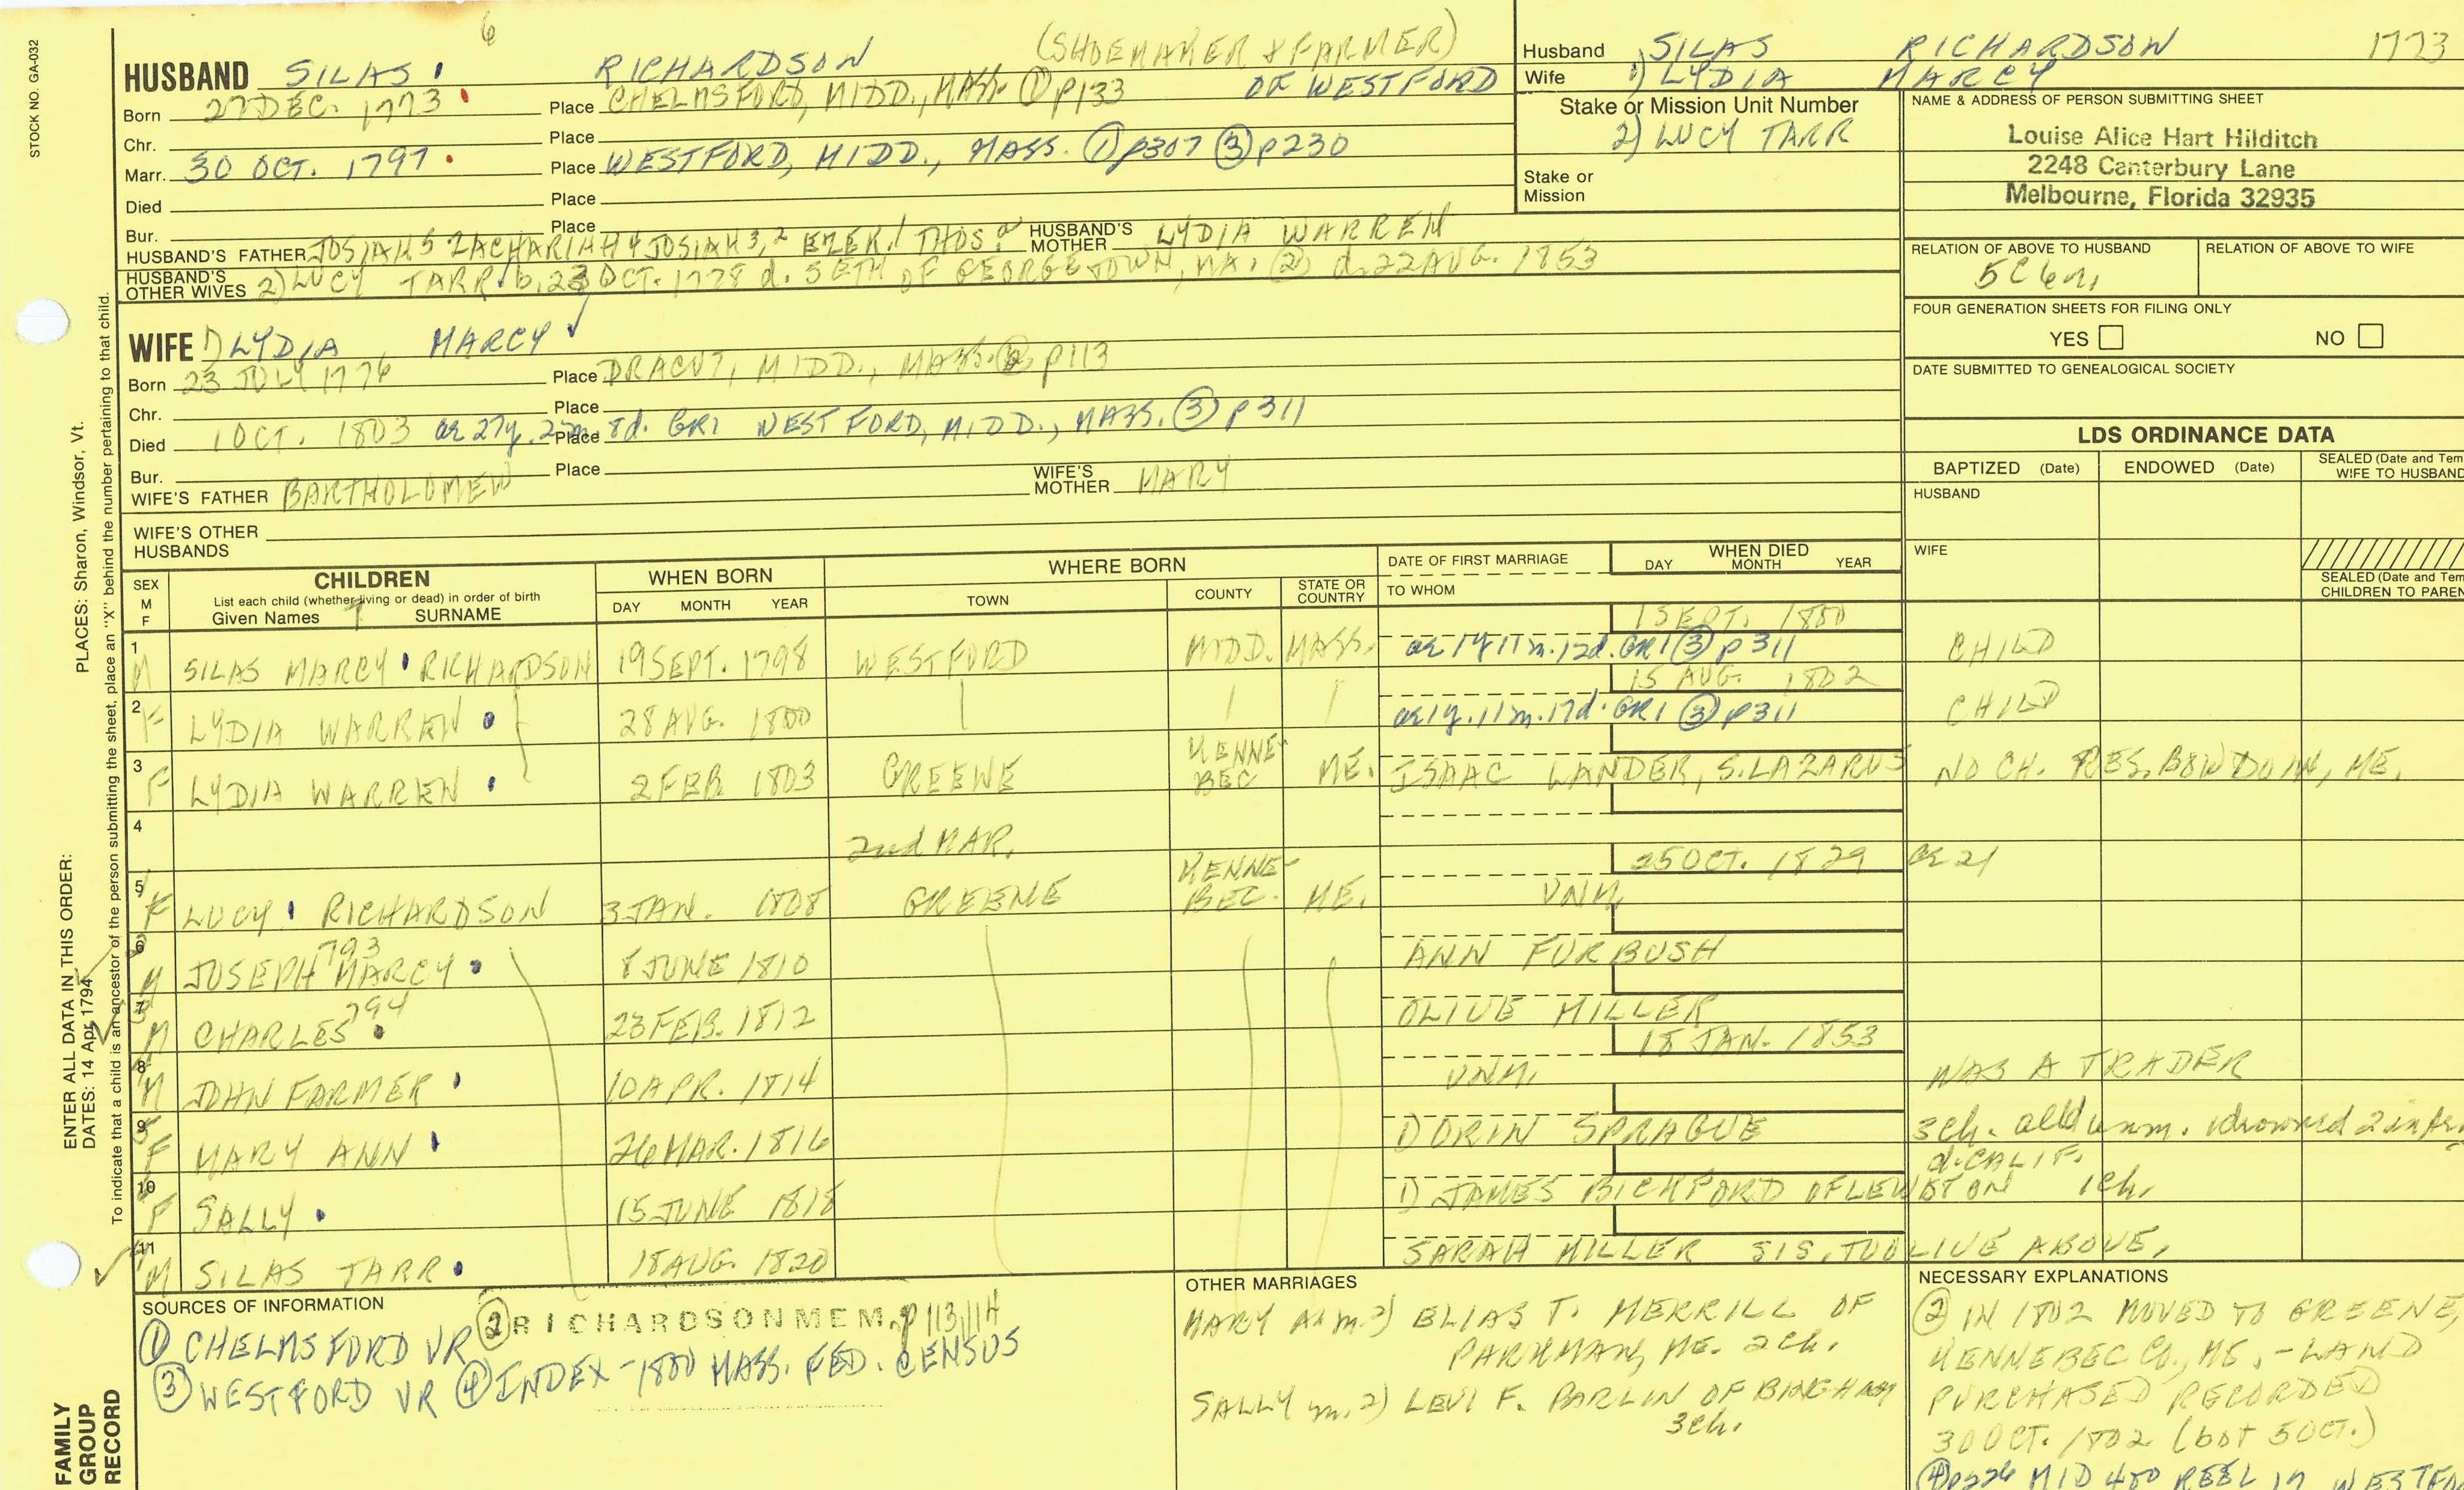 STOCK NO. GA-032
6
HUSBAND SILAS RICHARDSON (SHOEMAKER & FARMER)
Born 27 DEC. 1773 Place CHELMSFORD, MIDD., MASS. ① p133 OF WESTFORD
Chr. Place
Marr. 30 OCT. 1797 Place WESTFORD, MIDD., MASS. ① p307 ③ p230
Died Place
Bur. Place
HUSBAND'S FATHER JOSIAH 5 ZACHARIAH 4 JOSIAH 3,2 EZEK. 1 THOS. HUSBAND'S MOTHER LYDIA WARREN
HUSBAND'S OTHER WIVES 2) LUCY TARR b. 23 OCT. 1778 d. SETH OF GEORGETOWN, MA. (2) d. 22 AUG. 1853
WIFE 1) LYDIA MARCY
Born 23 JULY 1776 Place DRACUT, MIDD., MASS. ② p113
Chr. Place
Died 1 OCT. 1803 ae 27y. 2m. 8d. GR1 Place WESTFORD, MIDD., MASS. ③ p311
Bur. Place
WIFE'S FATHER BARTHOLOMEW WIFE'S MOTHER MARY
WIFE'S OTHER HUSBANDS
Husband SILAS RICHARDSON 1773
Wife 1) LYDIA MARCY
Stake or Mission Unit Number
2) LUCY TARR
Stake or Mission
NAME & ADDRESS OF PERSON SUBMITTING SHEET
Louise Alice Hart Hilditch
2248 Canterbury Lane
Melbourne, Florida 32935
RELATION OF ABOVE TO HUSBAND RELATION OF ABOVE TO WIFE
5C 6r.
FOUR GENERATION SHEETS FOR FILING ONLY
YES NO
DATE SUBMITTED TO GENEALOGICAL SOCIETY
LDS ORDINANCE DATA
BAPTIZED (Date) ENDOWED (Date) SEALED (Date and Tem
WIFE TO HUSBAND
HUSBAND
WIFE
SEALED (Date and Tem
CHILDREN TO PAREN
SEX M F CHILDREN WHEN BORN WHERE BORN DATE OF FIRST MARRIAGE WHEN DIED
List each child (whether living or dead) in order of birth
Given Names SURNAME DAY MONTH YEAR TOWN COUNTY STATE OR COUNTRY TO WHOM DAY MONTH YEAR
1 SEPT. 1800
1 M SILAS MARCY RICHARDSON 19 SEPT. 1798 WESTFORD MIDD. MASS. ae 1y 11m. 12d. GR1 ③ p311 CHILD
15 AUG. 1802
2 F LYDIA WARREN 28 AUG. 1800 ae 1y. 11m. 17d. GR1 ③ p311 CHILD
3 F LYDIA WARREN 2 FEB 1803 GREENE KENNEBEC ME. ISAAC LANDER, S. LAZARUS NO CH. RES. BOWDOIN, ME.
4 2nd MAR.
25 OCT. 1829 ae 21
5 F LUCY RICHARDSON 3 JAN. 1808 GREENE KENNEBEC. ME. UNM.
793
6 M JOSEPH MARCY 8 JUNE 1810 ANN FURBUSH
794
7 M CHARLES 23 FEB. 1812 OLIVE MILLER
18 JAN. 1853
8 M JOHN FARMER 10 APR. 1814 UNM. WAS A TRADER
9 F MARY ANN 26 MAR. 1816 DORIN SPRAGUE 3ch. all d unm. 1 drowned 2 in
d. CALIF.
10 F SALLY 15 JUNE 1818 1) JAMES BICKFORD OF LEWISTON 1ch.
11 M SILAS TARR 18 AUG. 1820 SARAH MILLER SIS. TO OLIVE ABOVE.
SOURCES OF INFORMATION
① CHELMSFORD VR ② RICHARDSON MEM. p 113, 114
③ WESTFORD VR ④ INDEX - 1800 MASS. FED. CENSUS
OTHER MARRIAGES
MARY A. m. 2) ELIAS T. MERRILL OF
PARKMAN, ME. 2ch.
SALLY m. 2) LEVI F. PARLIN OF BINGHAM
3ch.
NECESSARY EXPLANATIONS
② IN 1802 MOVED TO GREENE,
KENNEBEC CO., ME. - LAND
PURCHASED RECORDED
30 OCT. 1802 (bot 5 OCT.)
④ p226 MID 400 REEL 17 WESTFO
ENTER ALL DATA IN THIS ORDER:
DATES: 14 Apr 1794
PLACES: Sharon, Windsor, Vt.
To indicate that a child is an ancestor of the person submitting the sheet, place an "X" behind the number pertaining to that child.
FAMILY
GROUP
RECORD